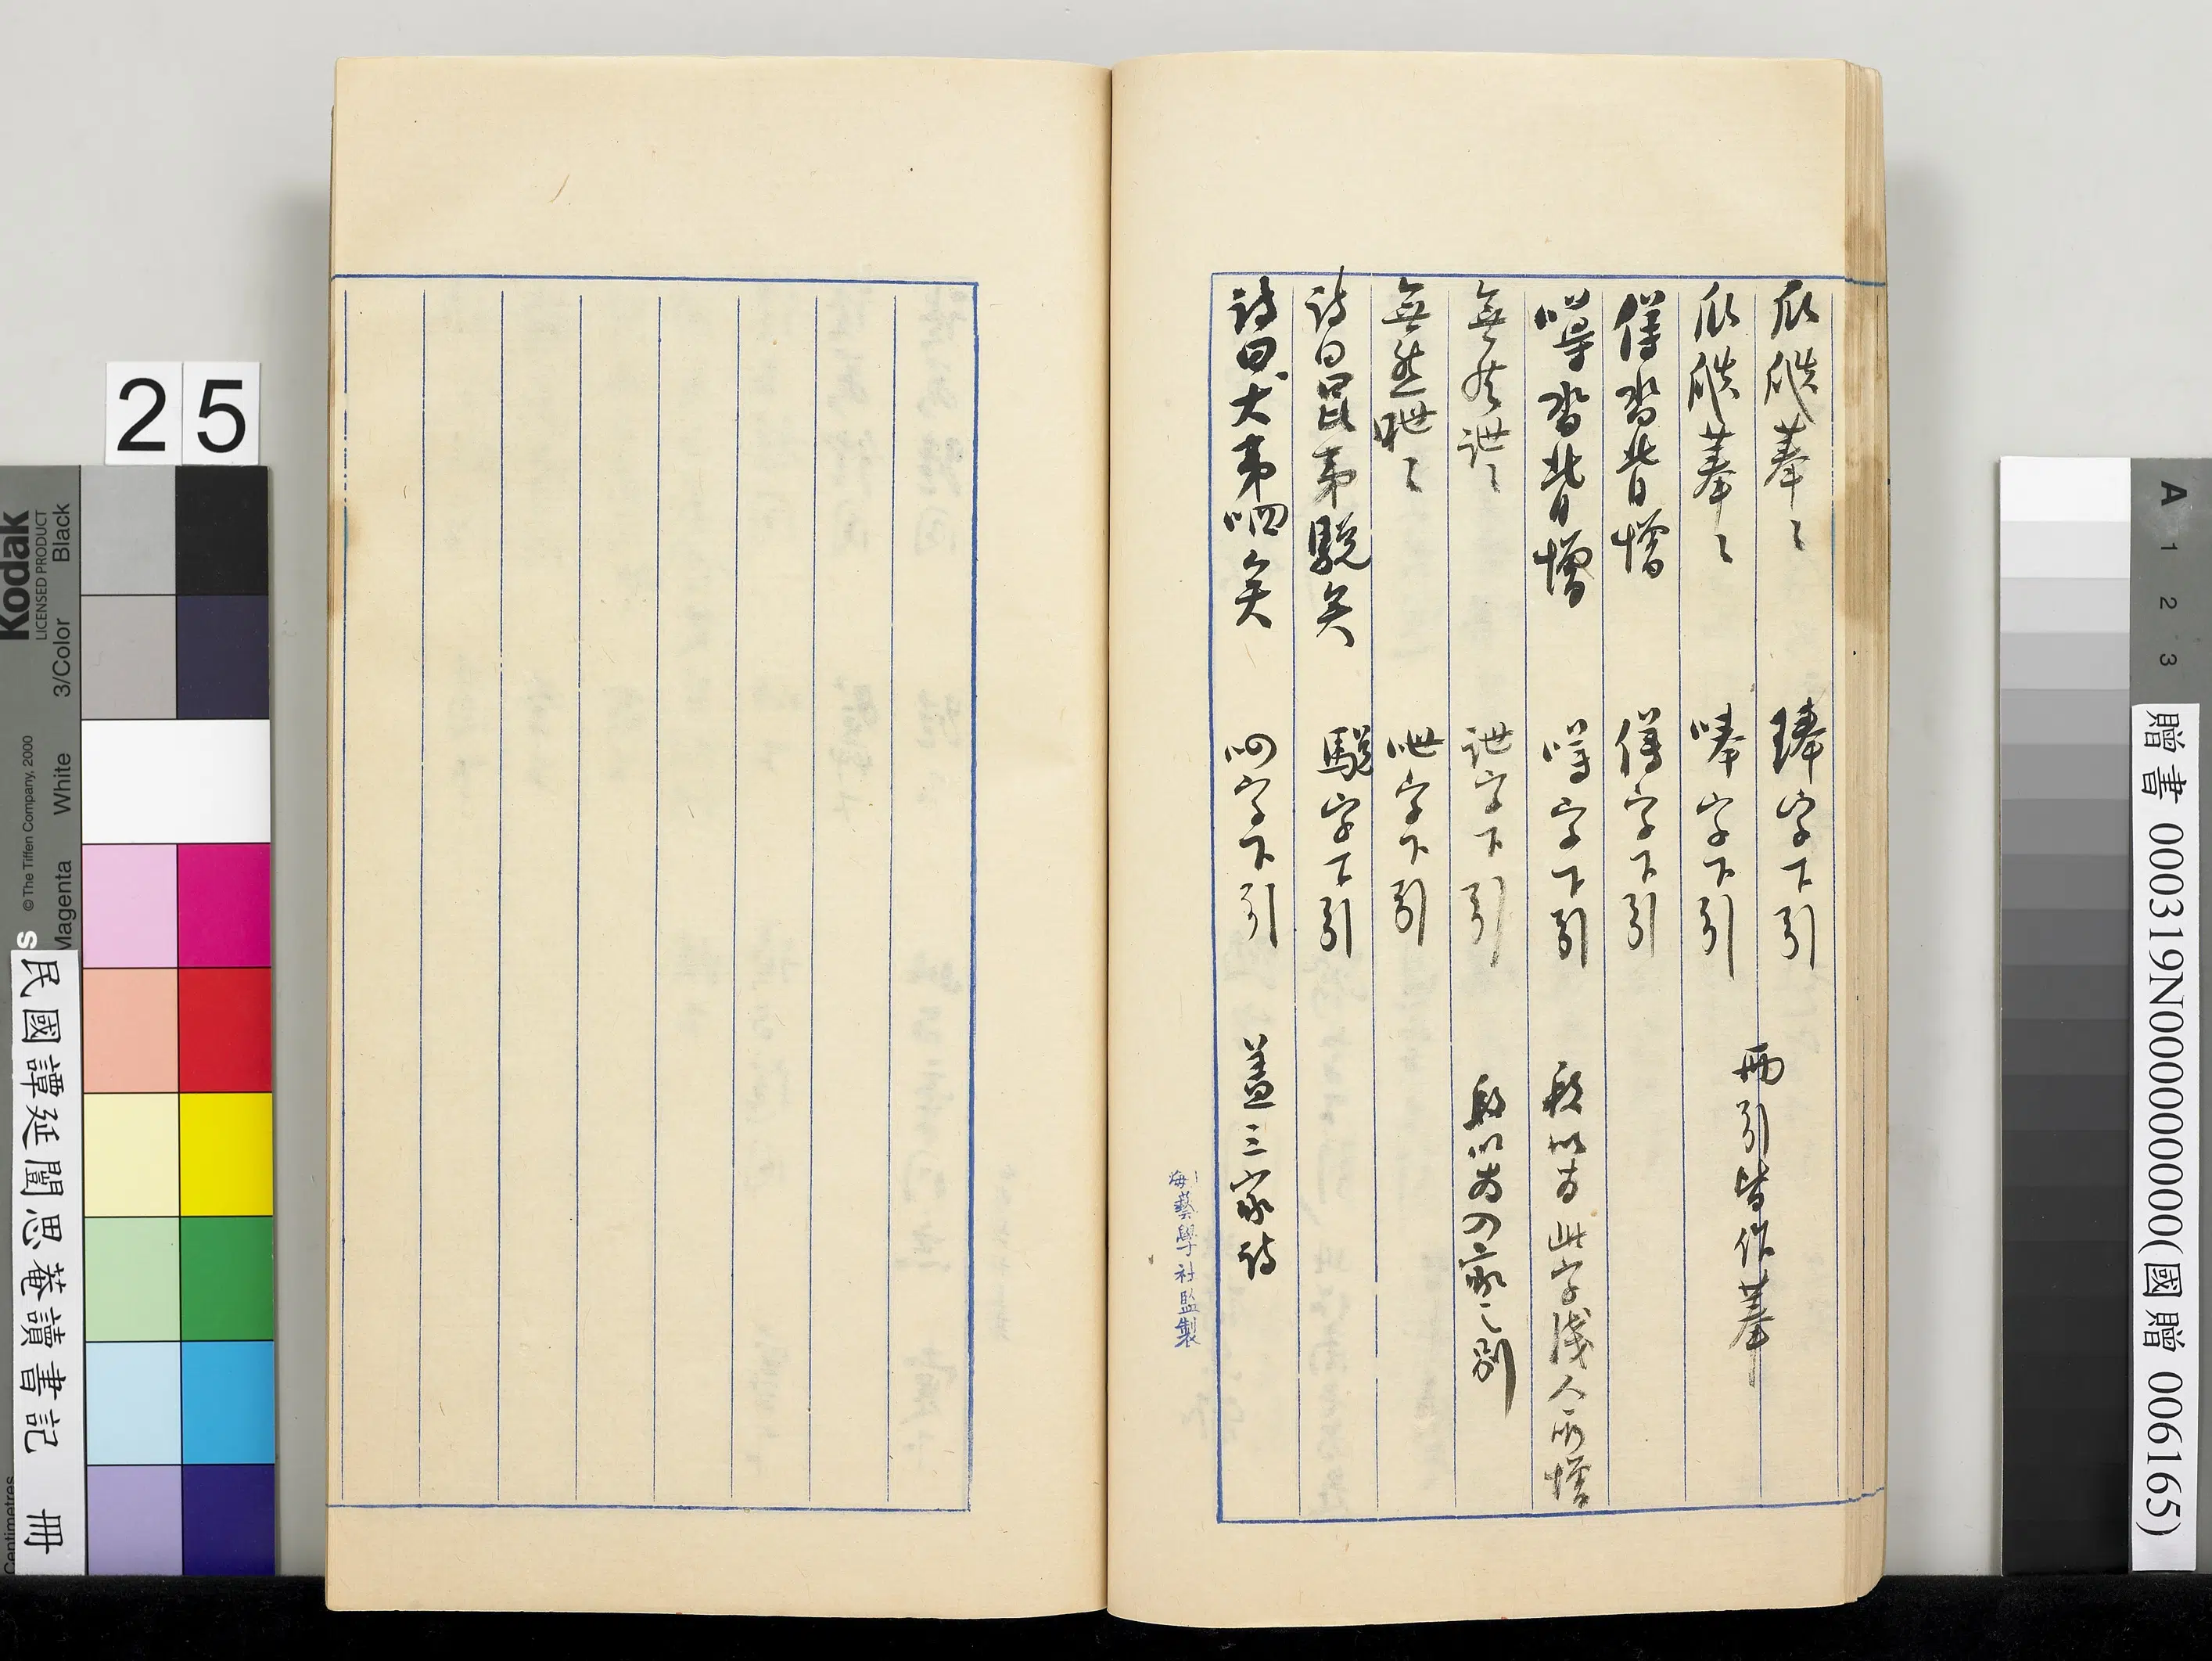 瓜瓞菶〻 玤字下引
瓜瓞菶〻 唪字下引
兩引皆作菶
僔沓背憎 僔字下引
噂沓背憎 噂字下引 段以為此字淺人所增
無然詍〻 詍字下引 段以為四家之別
無然呭〻 呭字下引
詩曰昆夷駾矣 駾字下引
詩曰犬夷呬矣 呬字下引 蓋三家詩
藝學社監製
25
Kodak
LICENSED PRODUCT
© The Tiffen Company, 2000
Black
3/Color
White
Magenta
Centimetres
民國譚延闓思菴讀書記 冊
A 1 2 3
贈書 000319N000000000(國贈 006165)